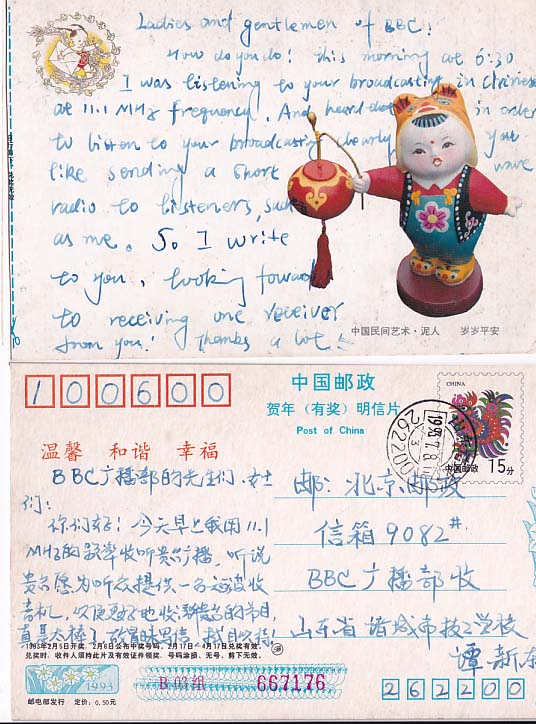 Ladies and gentlemen of BBC!
How do you do! this morning at 6:30
I was listening to your broadcasting in Chinese
at 11.1 MHz frequency. And heard in order
to listen to your broadcasting clearly you
like sending a short wave
radio to listeners, such
as me. So I write
to you, looking forward
to receiving one receiver
from you! Thanks a lot!
中国民间艺术·泥人 岁岁平安
100600
中国邮政
贺年（有奖）明信片
Post of China
CHINA
中国邮政 15分
1993.7.8
262200
温馨 和谐 幸福
BBC广播部的先生们、女士
们：
你们好！今天早上我用11.1
MHz的频率收听贵台广播，听说
贵台愿为听众提供一台短波收
音机，以便更好地收听贵台的节目，
真是太棒了，故冒昧写信，拭目以待！
邮：北京邮政
信箱9082#
BBC广播部收
山东省诸城市技工学校
谭新
1993年2月5日开奖，2月6日公布中奖号码，2月17日—4月17日兑奖有效。
兑奖时，收件人须持此片及有效证件领奖。号码涂损、无号、剪下无效。
1993
B 03组
667176
邮电部发行 定价：0.50元
262200